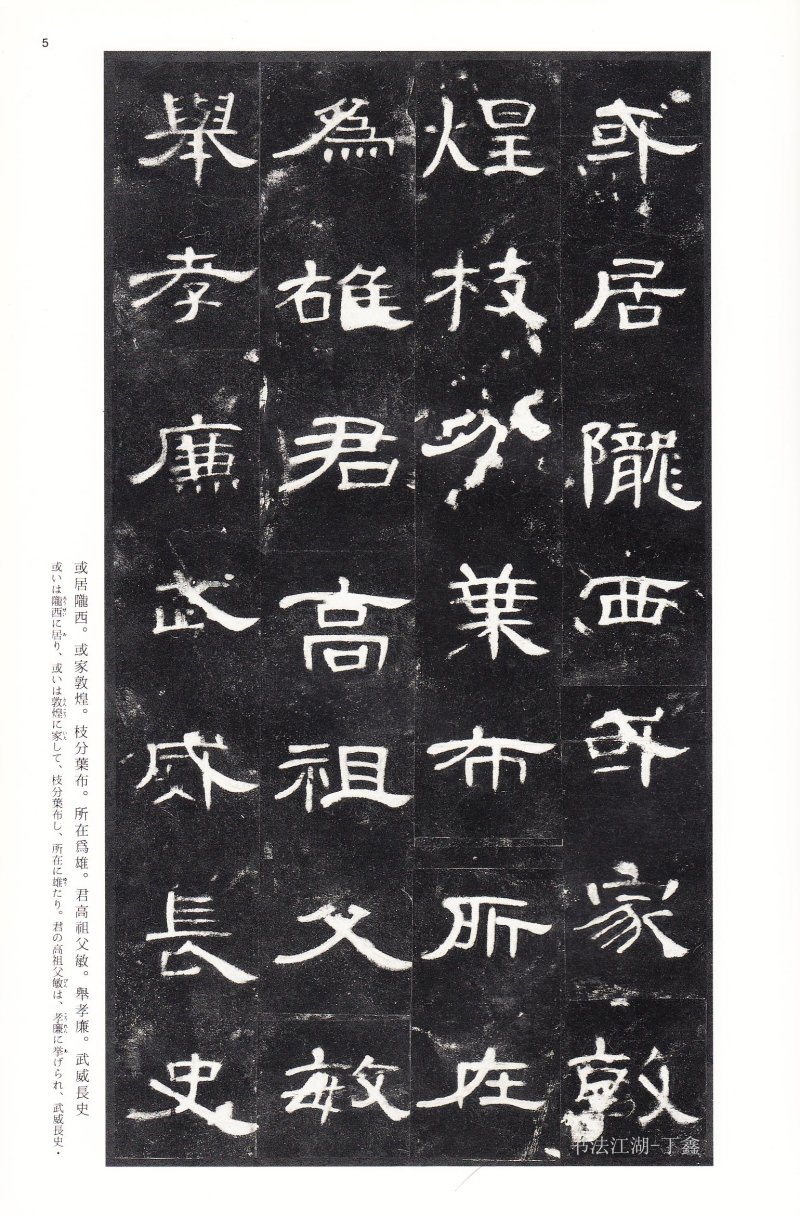 5
或居隴西或家敦
煌枝分葉布所在
為雄君高祖父敏
舉孝廉武威長史
或居隴西。或家敦煌。枝分葉布。所在爲雄。君高祖父敏。舉孝廉。武威長史
或いは隴西に居り、或いは敦煌に家して、枝分葉布し、所在に雄たり。君の高祖父敏は、孝廉に挙げられ、武威長史・
书法江湖-丁鑫